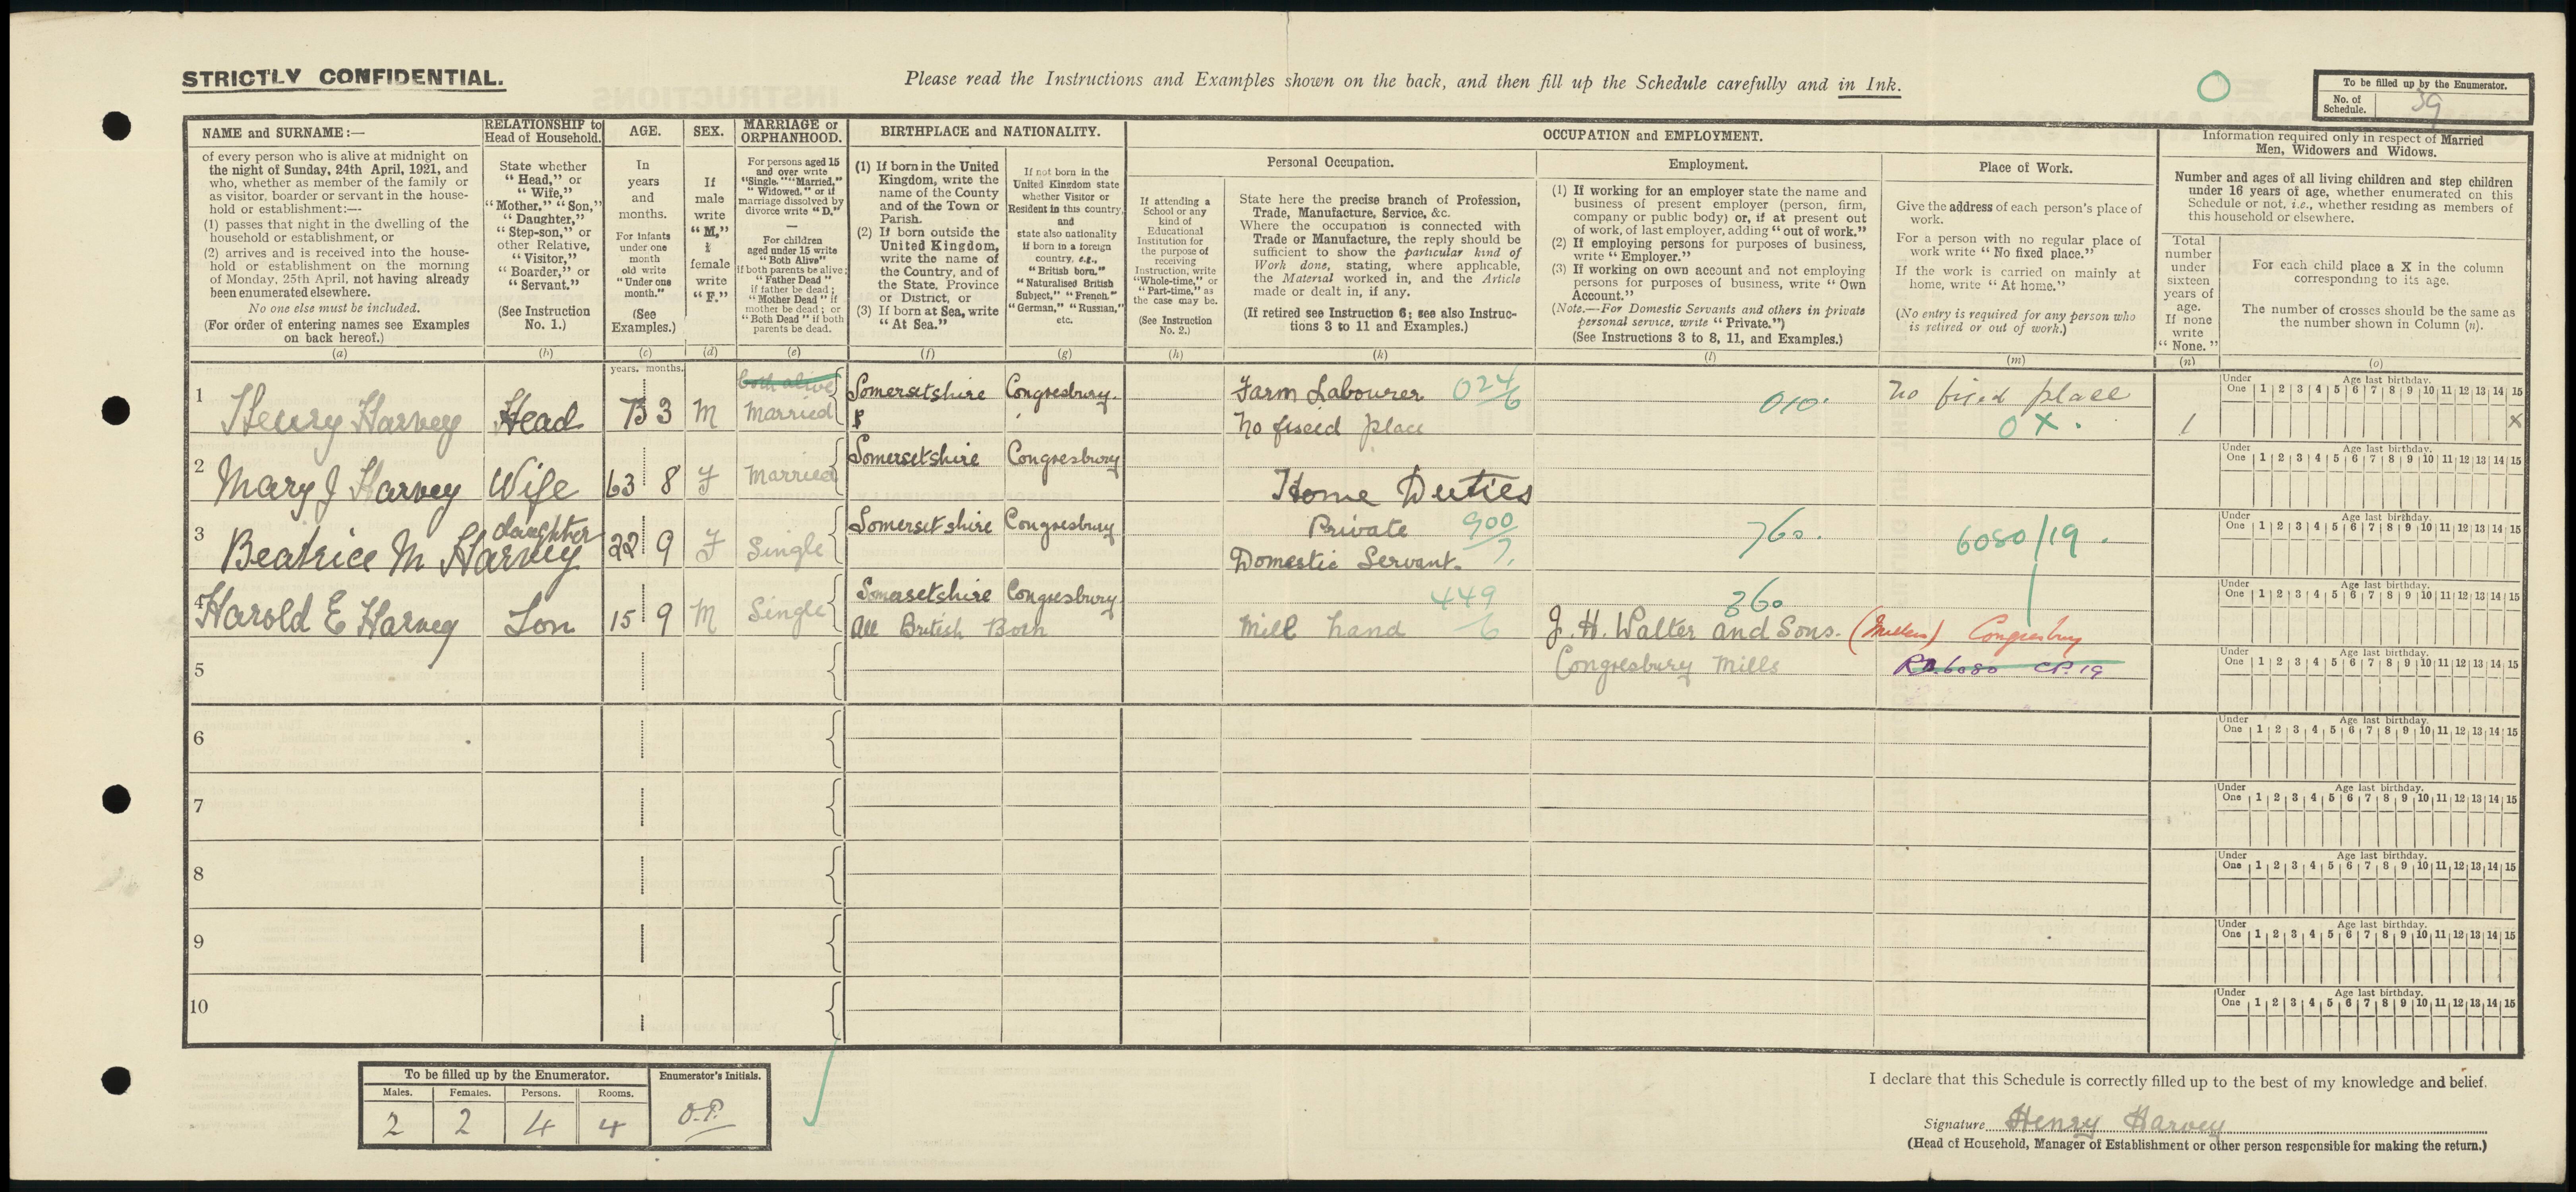 STRICTLY CONFIDENTIAL.
Please read the Instructions and Examples shown on the back, and then fill up the Schedule carefully and in Ink.
O
To be filled up by the Enumerator.
No. of Schedule. 39
NAME and SURNAME:—
of every person who is alive at midnight on
the night of Sunday, 24th April, 1921, and
who, whether as member of the family or
as visitor, boarder or servant in the house-
hold or establishment:—
(1) passes that night in the dwelling of the
household or establishment, or
(2) arrives and is received into the house-
hold or establishment on the morning
of Monday, 25th April, not having already
been enumerated elsewhere.
No one else must be included.
(For order of entering names see Examples
on back hereof.)
(a)
RELATIONSHIP to
Head of Household.
State whether
"Head," or
"Wife,"
"Mother," "Son,"
"Daughter,"
"Step-son," or
other Relative,
"Visitor,"
"Boarder," or
"Servant."
(See Instruction
No. 1.)
(b)
AGE.
In
years
and
months.
For infants
under one
month
old write
"Under one
month."
(See
Examples.)
(c)
SEX.
If
male
write
"M,"
if
female
write
"F."
(d)
MARRIAGE or
ORPHANHOOD.
For persons aged 15
and over write
"Single," "Married,"
"Widowed," or if
marriage dissolved by
divorce write "D."
—
For children
aged under 15 write
"Both Alive"
if both parents be alive;
"Father Dead"
if father be dead;
"Mother Dead" if
mother be dead; or
"Both Dead" if both
parents be dead.
(e)
BIRTHPLACE and NATIONALITY.
(1) If born in the United
Kingdom, write the
name of the County
and of the Town or
Parish.
(2) If born outside the
United Kingdom,
write the name of
the Country, and of
the State, Province
or District, or
(3) If born at Sea, write
"At Sea."
(f)
If not born in the
United Kingdom state
whether Visitor or
Resident in this country,
and
state also nationality
if born in a foreign
country, e.g.,
"British born."
"Naturalised British
Subject," "French."
"German," "Russian,"
etc.
(g)
OCCUPATION and EMPLOYMENT.
If attending a
School or any
kind of
Educational
Institution for
the purpose of
receiving
Instruction, write
"Whole-time," or
"Part-time," as
the case may be.
(See Instruction
No. 2.)
(h)
Personal Occupation.
State here the precise branch of Profession,
Trade, Manufacture, Service, &c.
Where the occupation is connected with
Trade or Manufacture, the reply should be
sufficient to show the particular kind of
Work done, stating, where applicable,
the Material worked in, and the Article
made or dealt in, if any.
(If retired see Instruction 6; see also Instruc-
tions 3 to 11 and Examples.)
(k)
Employment.
(1) If working for an employer state the name and
business of present employer (person, firm,
company or public body) or, if at present out
of work, of last employer, adding "out of work."
(2) If employing persons for purposes of business,
write "Employer."
(3) If working on own account and not employing
persons for purposes of business, write "Own
Account."
(Note.—For Domestic Servants and others in private
personal service, write "Private.")
(See Instructions 3 to 8, 11, and Examples.)
(l)
Place of Work.
Give the address of each person's place of
work.
For a person with no regular place of
work write "No fixed place."
If the work is carried on mainly at
home, write "At home."
(No entry is required for any person who
is retired or out of work.)
(m)
Information required only in respect of Married
Men, Widowers and Widows.
Number and ages of all living children and step children
under 16 years of age, whether enumerated on this
Schedule or not, i.e., whether residing as members of
this household or elsewhere.
Total
number
under
sixteen
years of
age.
If none
write
"None."
(n)
For each child place a X in the column
corresponding to its age.
The number of crosses should be the same as
the number shown in Column (n).
(o)
years. months.
1 Henry Harvey Head 73 3 M both alive Married Somersetshire Congresbury. Farm Labourer 024/6 010 No fixed place
No fixeid place 0 X. 1 X
Under One 1 2 3 4 5 6 7 8 9 10 11 12 13 14 15
Age last birthday.
2 Mary J Harvey Wife 63 8 F Married Somersetshire Congresbury Home Duties
Under One 1 2 3 4 5 6 7 8 9 10 11 12 13 14 15
Age last birthday.
3 Beatrice M Harvey daughter 22 9 F Single Somersetshire Congresbury Private 900/7. 760. 6080/19.
Domestic Servant.
Under One 1 2 3 4 5 6 7 8 9 10 11 12 13 14 15
Age last birthday.
4 Harold E Harvey Son 15 9 M Single Somersetshire Congresbury 449/6 360
All British Born Mill hand J. H. Walter and Sons. (Millers) Congresbury
Under One 1 2 3 4 5 6 7 8 9 10 11 12 13 14 15
Age last birthday.
5 Congresbury Mills RD.6080 CP.19
Under One 1 2 3 4 5 6 7 8 9 10 11 12 13 14 15
Age last birthday.
6
Under One 1 2 3 4 5 6 7 8 9 10 11 12 13 14 15
Age last birthday.
7
Under One 1 2 3 4 5 6 7 8 9 10 11 12 13 14 15
Age last birthday.
8
Under One 1 2 3 4 5 6 7 8 9 10 11 12 13 14 15
Age last birthday.
9
Under One 1 2 3 4 5 6 7 8 9 10 11 12 13 14 15
Age last birthday.
10
Under One 1 2 3 4 5 6 7 8 9 10 11 12 13 14 15
Age last birthday.
To be filled up by the Enumerator.
Males. Females. Persons. Rooms.
2 2 4 4
Enumerator's Initials.
O.P.
I declare that this Schedule is correctly filled up to the best of my knowledge and belief.
Signature Henry Harvey
(Head of Household, Manager of Establishment or other person responsible for making the return.)